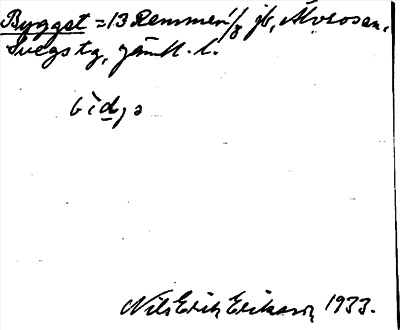 Bygget = 13 Remmen 1/8 jb, Älvrosen,
Svegs tg, Jämtl. l.
Nils Erik Erikson 1933.